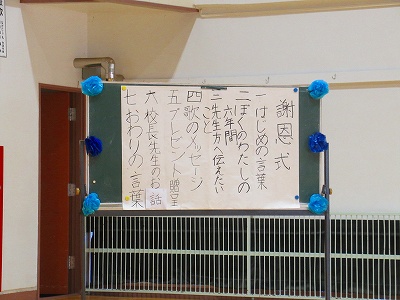 謝恩式
一 はじめの言葉
二 ぼくのわたしの
六年間
三 先生方へ伝えたい
こと
四 歌のメッセージ
五 プレゼント贈呈
六 校長先生のお話
七 おわりの言葉